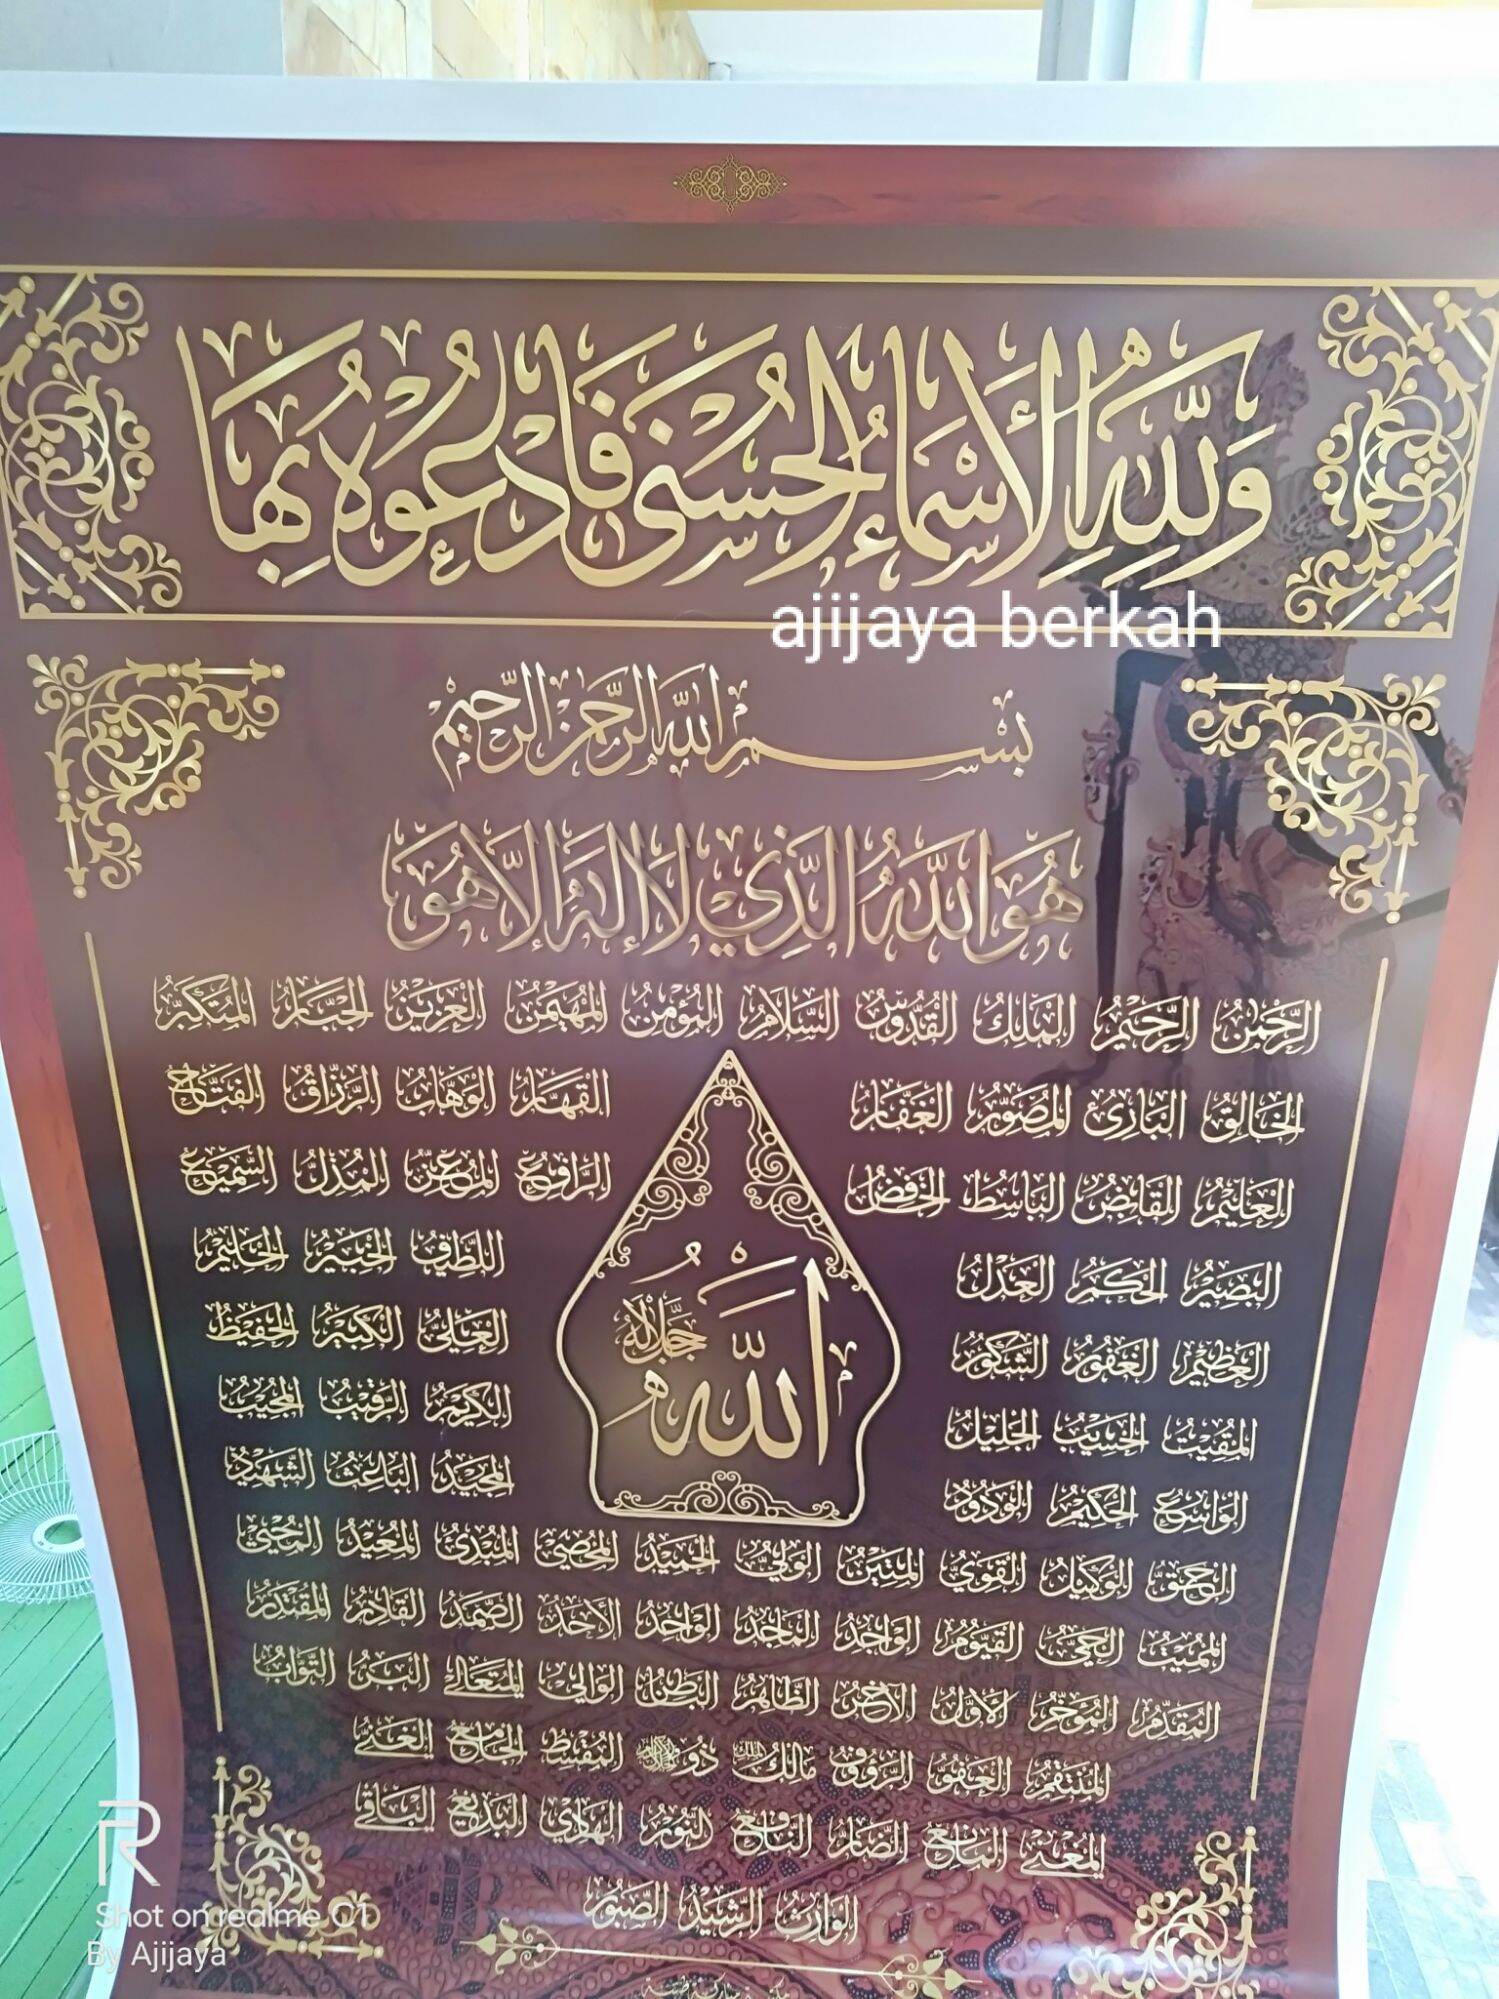 وَلِلَّهِ الْأَسْمَاءُ الْحُسْنَى فَادْعُوهُ بِهَا
ajijaya berkah
بِسْمِ اللَّهِ الرَّحْمَنِ الرَّحِيمِ
هُوَ اللَّهُ الَّذِي لَا إِلَهَ إِلَّا هُوَ
الرَّحْمٰنُ الرَّحِيْمُ الْمَلِكُ الْقُدُّوسُ السَّلَامُ الْمُؤْمِنُ الْمُهَيْمِنُ الْعَزِيْزُ الْجَبَّارُ الْمُتَكَبِّرُ
الْخَالِقُ الْبَارِئُ الْمُصَوِّرُ الْغَفَّارُ الْقَهَّارُ الْوَهَّابُ الرَّزَّاقُ الْفَتَّاحُ
الْعَلِيْمُ الْقَابِضُ الْبَاسِطُ الْخَافِضُ الرَّافِعُ الْمُعِزُّ الْمُذِلُّ السَّمِيْعُ
الْبَصِيْرُ الْحَكَمُ الْعَدْلُ اللَّطِيْفُ الْخَبِيْرُ الْحَلِيْمُ
الْعَظِيْمُ الْغَفُوْرُ الشَّكُوْرُ الْعَلِيُّ الْكَبِيْرُ الْحَفِيْظُ
الْمُقِيْتُ الْحَسِيْبُ الْجَلِيْلُ الْكَرِيْمُ الرَّقِيْبُ الْمُجِيْبُ
الْوَاسِعُ الْحَكِيْمُ الْوَدُوْدُ الْمَجِيْدُ الْبَاعِثُ الشَّهِيْدُ
الْحَقُّ الْوَكِيْلُ الْقَوِيُّ الْمَتِيْنُ الْوَلِيُّ الْحَمِيْدُ الْمُحْصِيْ الْمُبْدِئُ الْمُعِيْدُ الْمُحْيِيْ
الْمُمِيْتُ الْحَيُّ الْقَيُّوْمُ الْوَاجِدُ الْمَاجِدُ الْوَاحِدُ الْأَحَدُ الصَّمَدُ الْقَادِرُ الْمُقْتَدِرُ
الْمُقَدِّمُ الْمُؤَخِّرُ الْأَوَّلُ الْآخِرُ الظَّاهِرُ الْبَاطِنُ الْوَالِيْ الْمُتَعَالِيْ الْبَرُّ التَّوَّابُ
الْمُنْتَقِمُ الْعَفُوُّ الرَّؤُوْفُ مَالِكُ الْمُلْكِ ذُو الْجَلَالِ وَالْإِكْرَامِ الْمُقْسِطُ الْجَامِعُ الْغَنِيُّ
الْمُغْنِيْ الْمَانِعُ الضَّارُّ النَّافِعُ النُّوْرُ الْهَادِيْ الْبَدِيْعُ الْبَاقِيْ
الْوَارِثُ الرَّشِيْدُ الصَّبُوْرُ
اللَّهُ جَلَّ جَلَالُهُ
R
Shot on realme C1
By Ajijaya